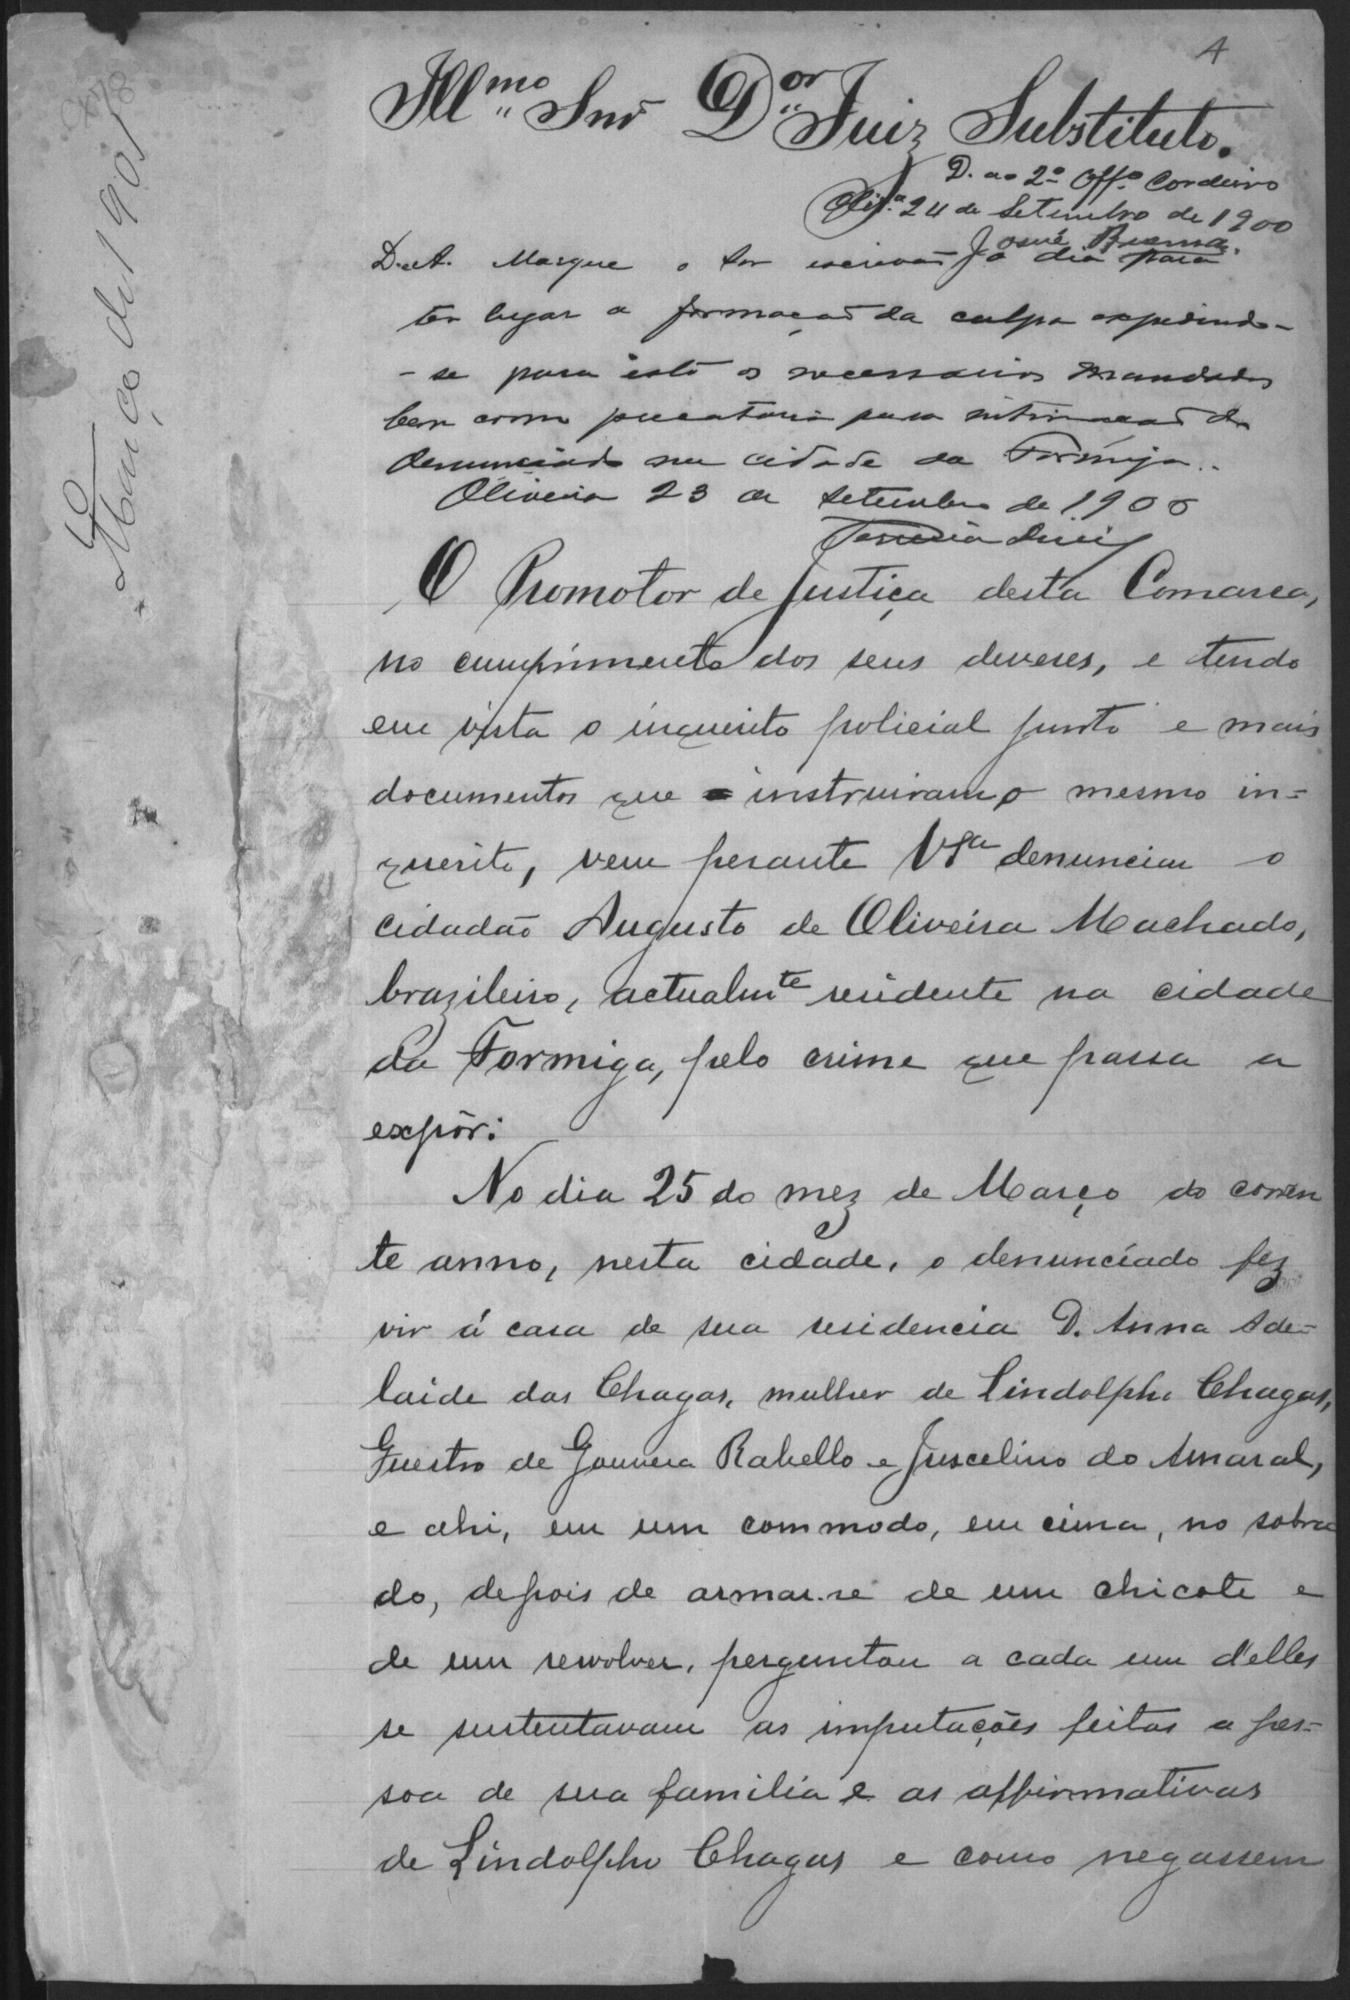 4
Illmo Snr Dor Juiz Substituto.
D. ao 2º Offº Cordeiro
Olivª 24 de Setembro de 1900
Josué
D. A. Marque o Snr escrivão o dia para
ter lugar a formação da culpa expedindo-
-se para isto os necessarios mandados
bem como precatoria para intimação do
denunciado na cidade da Formiga.
Oliveira 23 de setembro de 1900
O Promotor de Justiça desta Comarca,
no cumprimento dos seus deveres, e tendo
em vista o inquerito policial junto e mais
documentos que instruiram o mesmo in-
querito, vem perante V Sª denunciar o
cidadão Augusto de Oliveira Machado,
brazileiro, actualmte residente na cidade
da Formiga, pelo crime que passa a
expôr:
No dia 25 do mez de Março do corren
te anno, nesta cidade, o denunciado fez
vir á casa de sua residencia D. Anna Ade-
laide das Chagas, mulher de Lindolpho Chagas,
de Gouvea Rabello e Juscelino do Amaral,
e ahi, em um commodo, em cima, no sobra
do, depois de armar-se de um chicote e
de um revolver, perguntou a cada um d'elles
se sustentavam as imputações feitas a pes-
soa de sua familia e as affirmativas
de Lindolpho Chagas e como negassem
Março de 1901